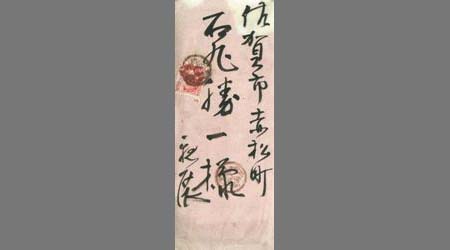 佐賀市赤松町
石丸勝一様
親展